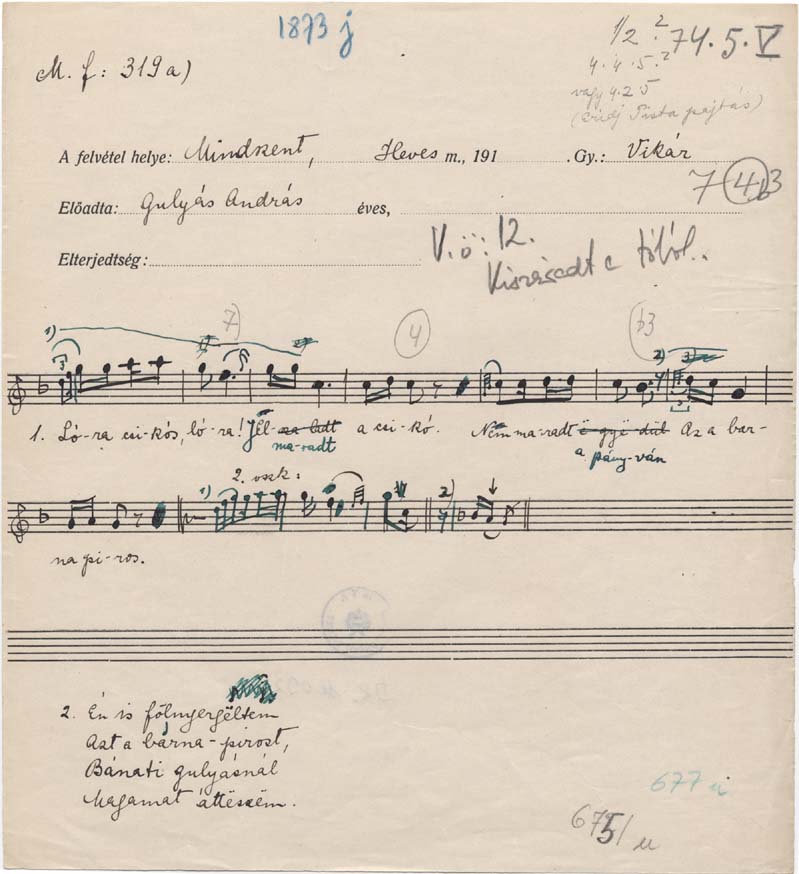 1873 j
1/2.² 74.5.V
M. f: 319a)
4.4.5.²
vagy 4.2 5
Pista pajtás)
A felvétel helye: Mindszent, Heves m., 191 . Gy.: Vikár
7 4 b3
Előadta: Gulyás András éves,
V.ö: 12.
Elterjedtség:
7) 4 b3
1) 2) 3
1. Ló-ra csi-kós, ló-ra! Jël- a csi-kó. Nem ma-radt Az a bar-
ma-radt a pány-ván
2. vszk:
1) 2)
na pi-ros.
2. Én is fölnyergëltem
Azt a bárna-pirost,
Bánati gulyásnál
Magamat áttëszëm.
677 u
675/u